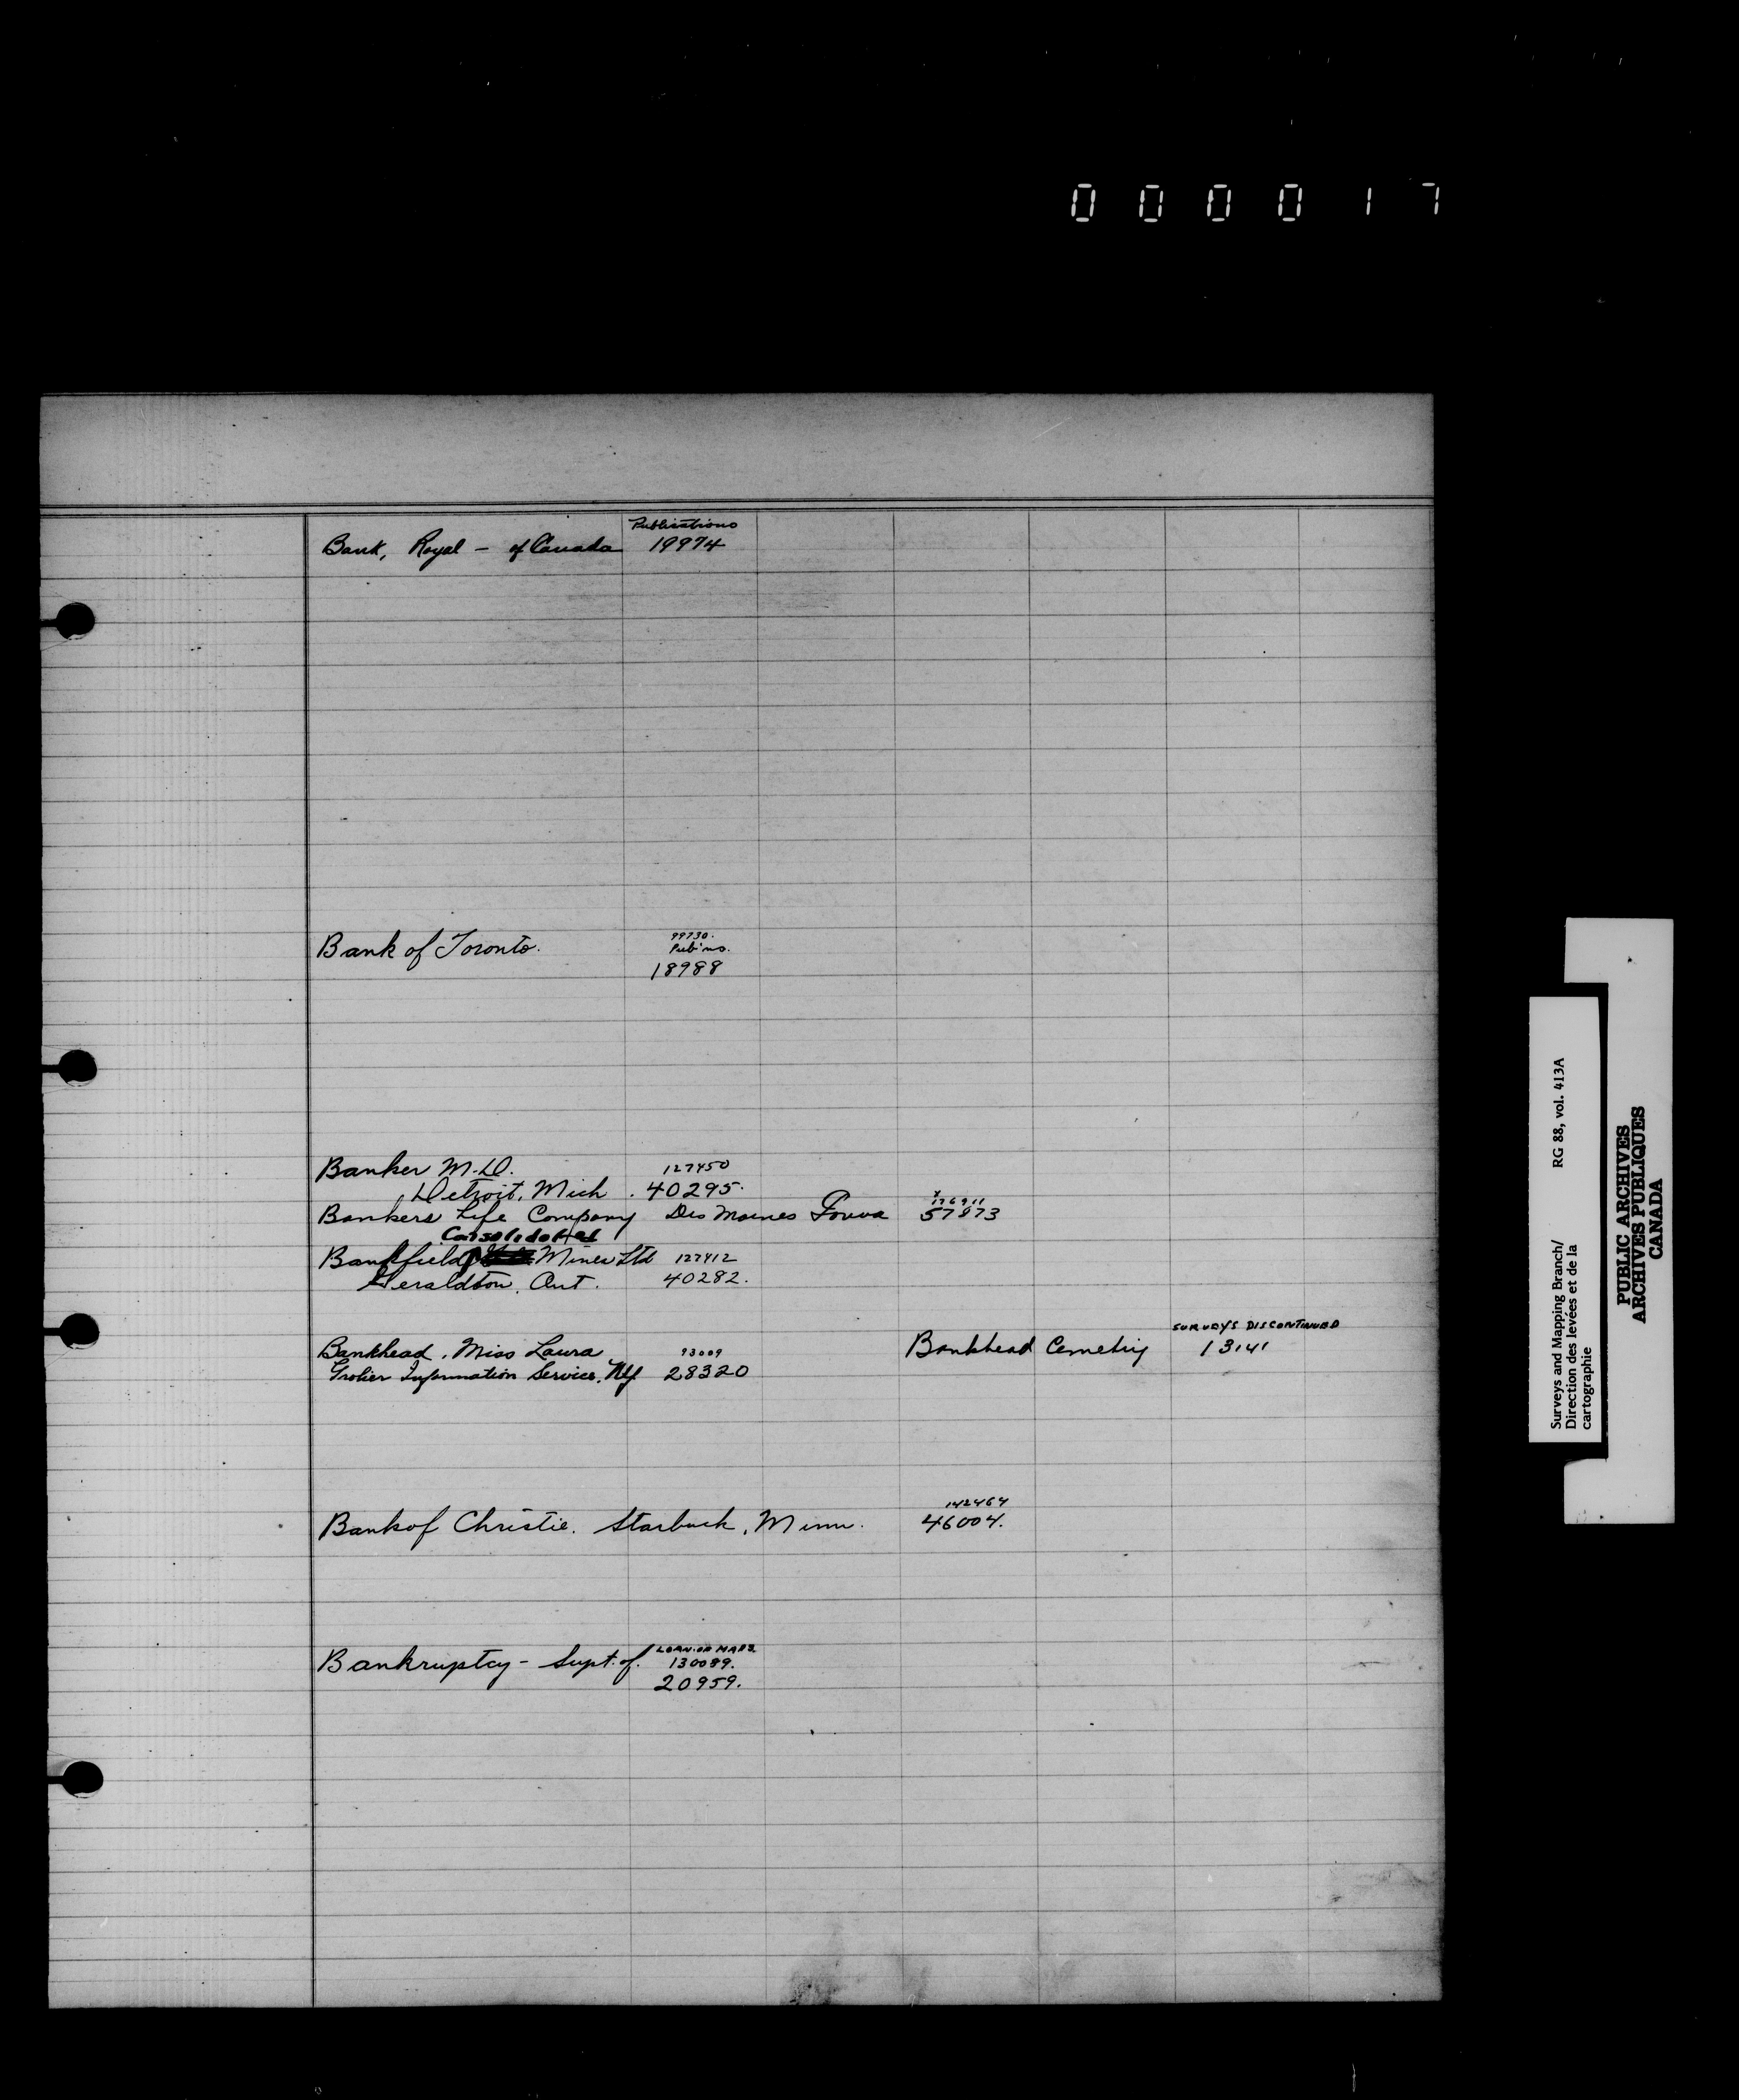 000017
Publications
Bank, Royal - of Canada 19974
99730.
Bank of Toronto. Pub'ns.
18988
Banker M.D. 127450
Detroit, Mich. 40295.
176911
Bankers Life Company Des Moines Iowa 57873
Consolidated
Bankfield Mines Ltd 127412
Geraldton, Ont. 40282.
SURVEYS DISCONTINUED
Bankhead, Miss Laura 93009 Bankhead Cemetry 13141
Grolier Information Service, NY 28320
142464
Bank of Christie. Starbuck, Minn. 46004.
LOAN OF MAPS.
Bankruptcy - Supt. of. 130089.
20959.
Surveys and Mapping Branch/ RG 88, vol. 413A
Direction des levées et de la
cartographie
PUBLIC ARCHIVES
ARCHIVES PUBLIQUES
CANADA